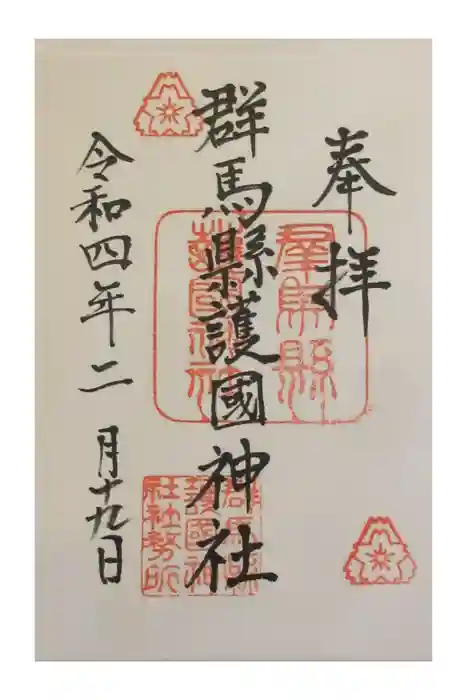 奉拝
群馬縣護國神社
群馬縣護國神社
群馬縣護國神社社務所
令和四年二月十九日